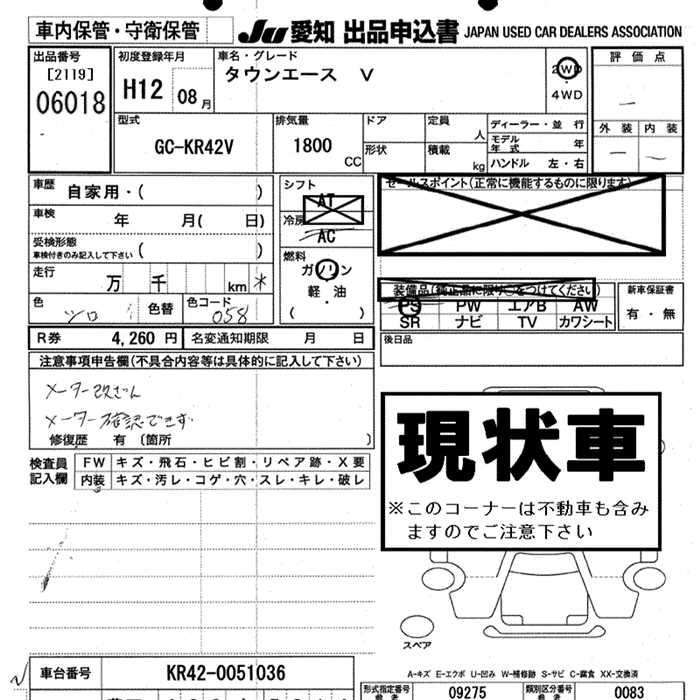 車内保管・守衛保管
JU 愛知 出品申込書 JAPAN USED CAR DEALERS ASSOCIATION
出品番号
[2119]
06018
初度登録年月
H12 08月
車名・グレード
タウンエース V
2WD
・
4WD
評価点
外装 内装
型式
GC-KR42V
排気量
1800
CC
ドア
定員
人
形状
積載
kg
ディーラー・並行
モデル年式 年
ハンドル 左・右
車歴 自家用・( )
車検 年 月( 日)
受検形態
車検付きのみ記入して下さい ( )
走行 万 千 km *
色 シロ 色替 色コード 058
シフト
AT
冷房
AC
燃料
ガソリン
・
軽・油
( )
セールスポイント(正常に機能するものに限ります)
装備品(純正品に限り○をつけてください)
PS PW エアB AW
SR ナビ TV カワシート
新車保証書
有・無
R券 4,260 円 名変通知期限 月 日
後日品
注意事項申告欄(不具合内容等は具体的に記入して下さい)
メーター改ざん
メーター確認できず
修復歴 有 〔箇所 〕
検査員
記入欄
FW キズ・飛石・ヒビ割・リペア跡・X要
内装 キズ・汚レ・コゲ・穴・スレ・キレ・破レ
現状車
※このコーナーは不動車も含み
ますのでご注意下さい
スペア
A-キズ E-エクボ U-凹み W-補修跡 S-サビ C-腐食 XX-交換済
車台番号 KR42-0051036
形式指定番号 09275 類別区分番号 0083